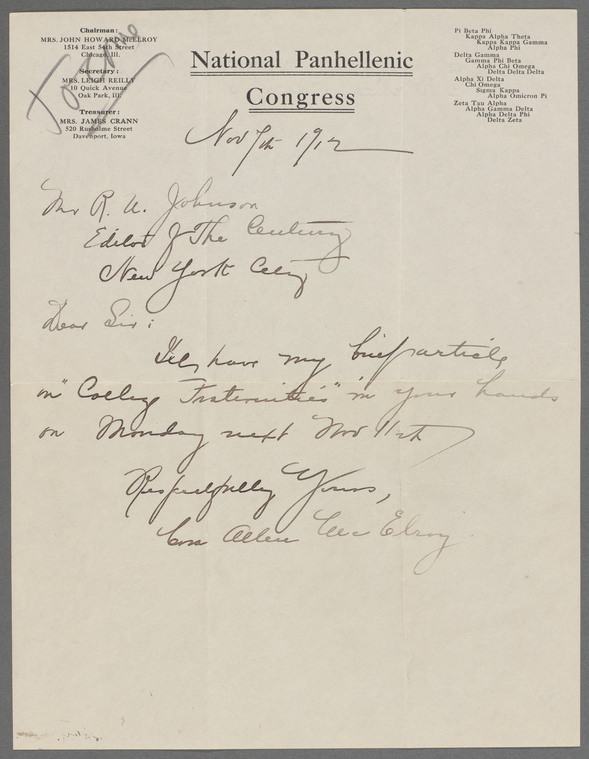 Chairman:
MRS. JOHN HOWARD McELROY
1514 East 54th Street
Chicago, Ill.
Secretary:
MRS. LEIGH REILLY
10 Quick Avenue
Oak Park, Ill.
Treasurer:
MRS. JAMES CRANN
520 Rusholme Street
Davenport, Iowa
National Panhellenic
Congress
Pi Beta Phi
Kappa Alpha Theta
Kappa Kappa Gamma
Alpha Phi
Delta Gamma
Gamma Phi Beta
Alpha Chi Omega
Delta Delta Delta
Alpha Xi Delta
Chi Omega
Sigma Kappa
Alpha Omicron Pi
Zeta Tau Alpha
Alpha Gamma Delta
Alpha Delta Phi
Delta Zeta
Nov 7th 1912
Mr R. U. Johnson
Editor of The Century
New York City
Dear Sir:
I'll have my brief article
on "College Fraternities" in your hands
on Monday next Nov 11th
Respectfully Yours,
Cora Allen McElroy